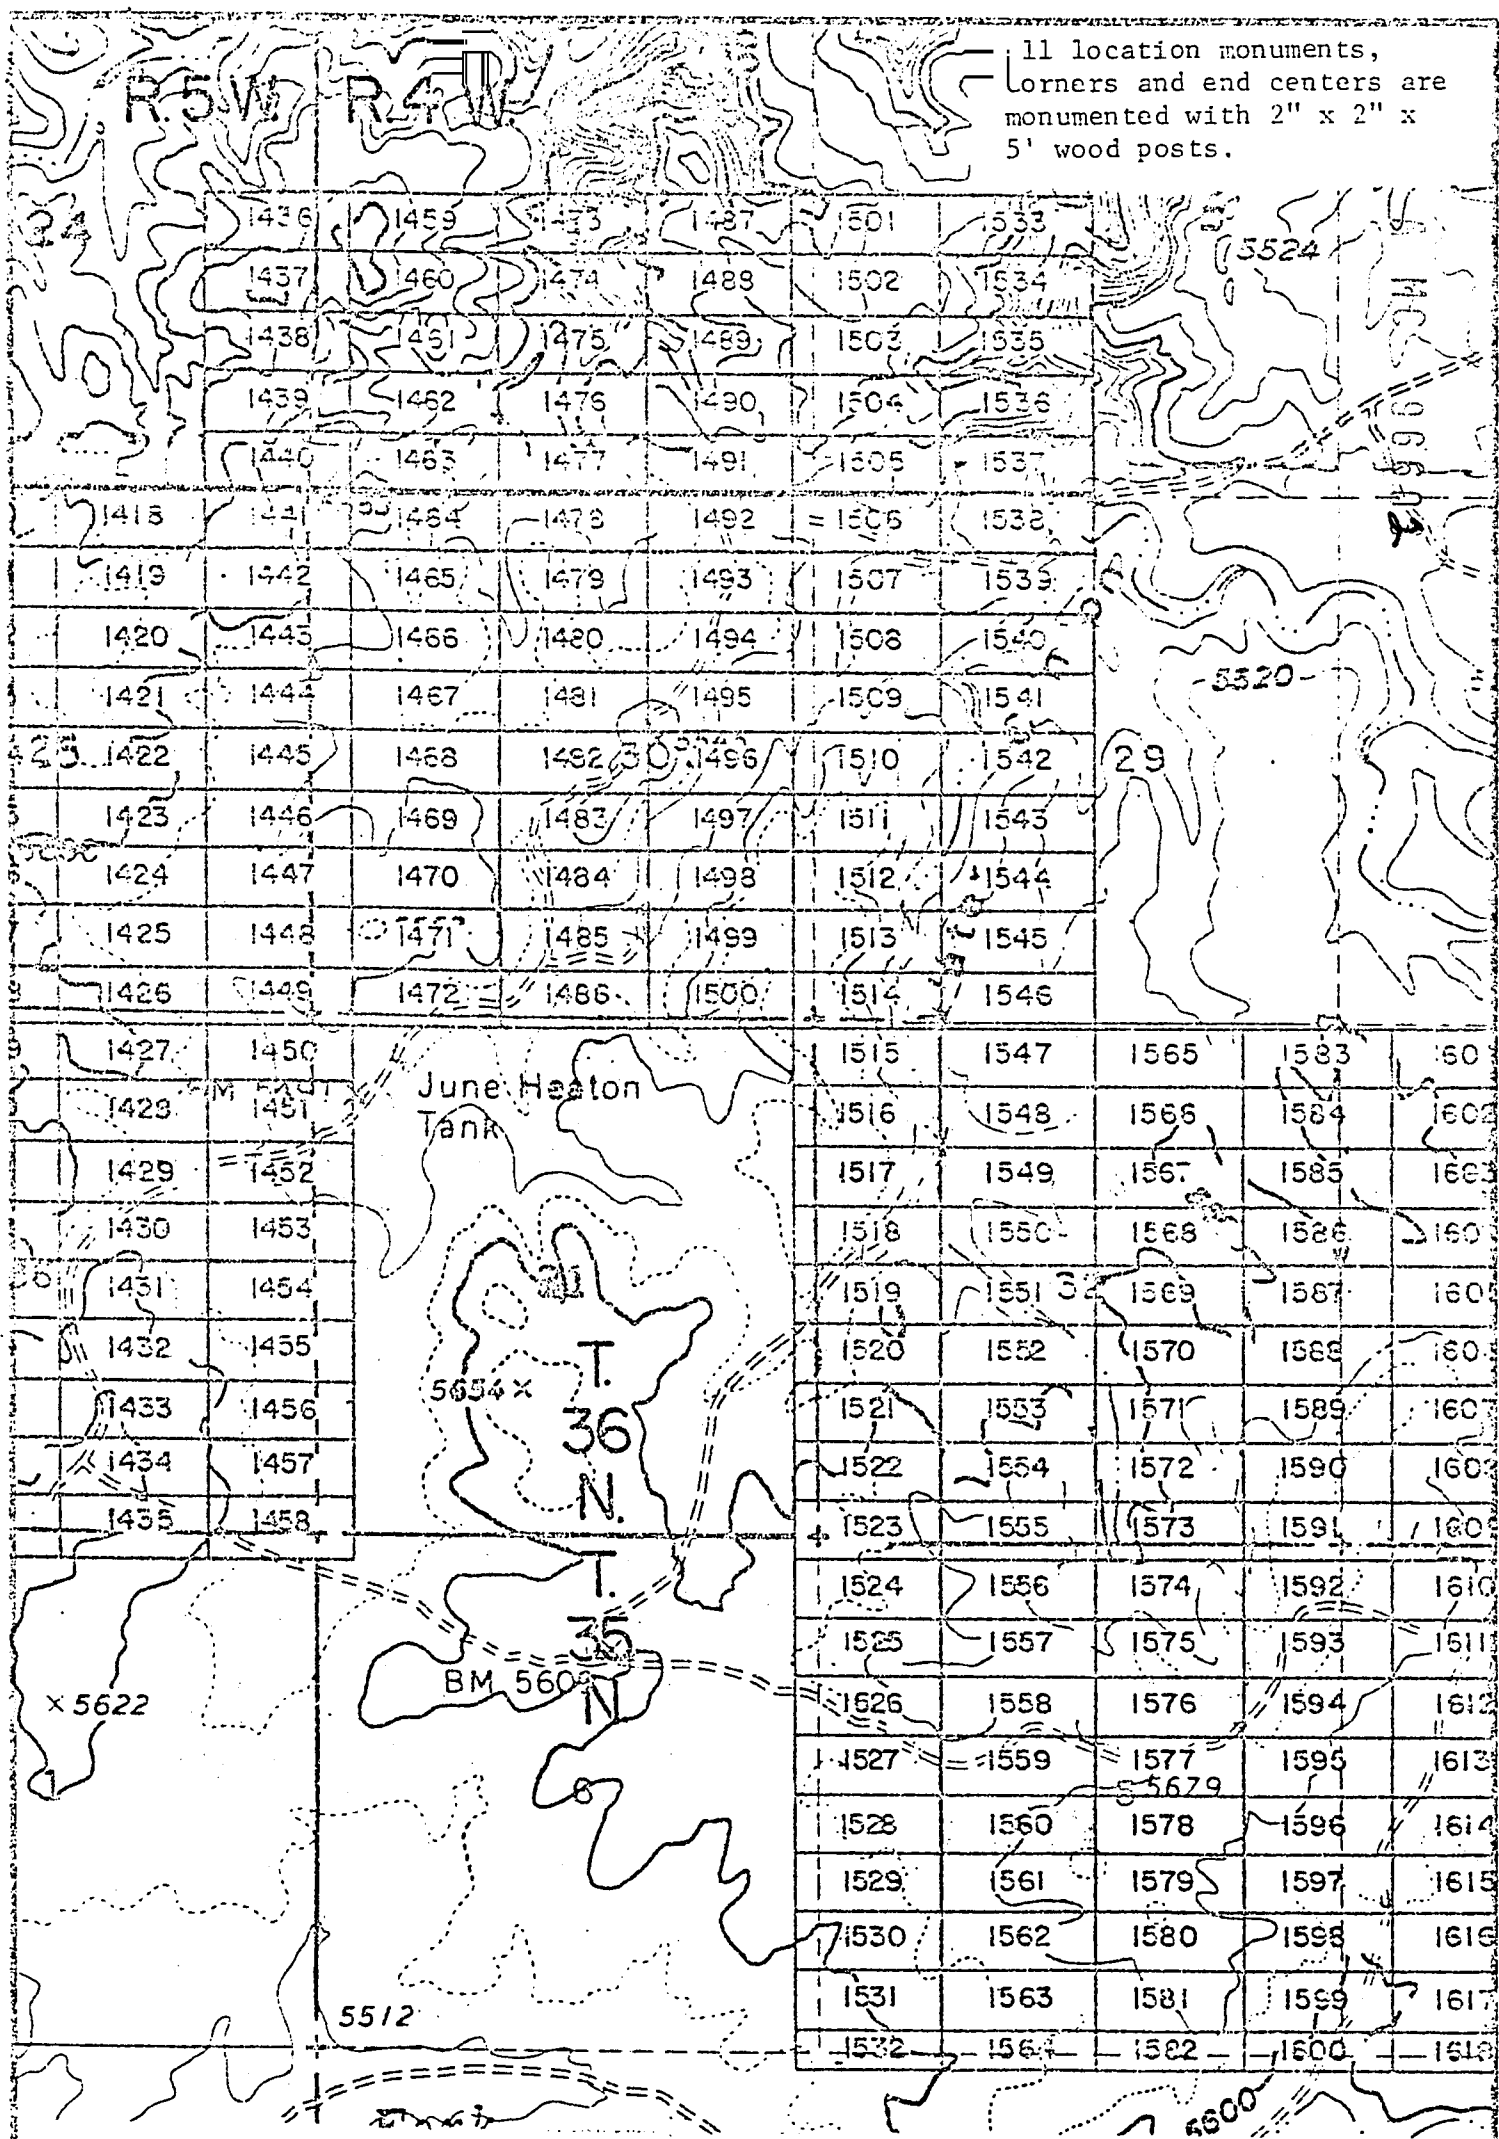 11 location monuments,
corners and end centers are
monumented with 2" x 2" x
5' wood posts.
R.5W. R.4W.
24
1436 1459 1473 1487 1501 1533
5524
1437 1460 1474 1488 1502 1534
1438 1461 1475 1489 1503 1535
1439 1462 1476 1490 1504 1536
1440 1463 1477 1491 1505 1537
1418 1441 1464 1478 1492 1506 1538
1419 1442 1465 1479 1493 1507 1539
1420 1443 1466 1480 1494 1508 1540
5520
1421 1444 1467 1481 1495 1509 1541
25 1422 1445 1468 1482 30 1496 1510 1542 29
1423 1446 1469 1483 1497 1511 1543
1424 1447 1470 1484 1498 1512 1544
1425 1448 1471 1485 1499 1513 1545
1426 1449 1472 1486 1500 1514 1546
1427 1450 1515 1547 1565 1583 160
June Heaton
Tank
1428 1451 1516 1548 1566 1584 1602
1429 1452 1517 1549 1567 1585 1603
1430 1453 1518 1550 1568 1586 160
36 1431 1454 31 1519 1551 32 1569 1587 160
1432 1455 T. 1520 1552 1570 1588 160
5654 ×
1433 1456 36 1521 1553 1571 1589 1607
1434 1457 N. 1522 1554 1572 1590 160
1435 1458 1523 1555 1573 1591 160
T. 1524 1556 1574 1592 1610
35 1525 1557 1575 1593 1611
BM 560
× 5622 N. 1526 1558 1576 1594 1612
1527 1559 1577 1595 1613
1 6 5 5679
1528 1560 1578 1596 1614
1529 1561 1579 1597 1615
1530 1562 1580 1598 1616
1531 1563 1581 1599 1617
5512
1532 1564 1582 1600 1618
5600